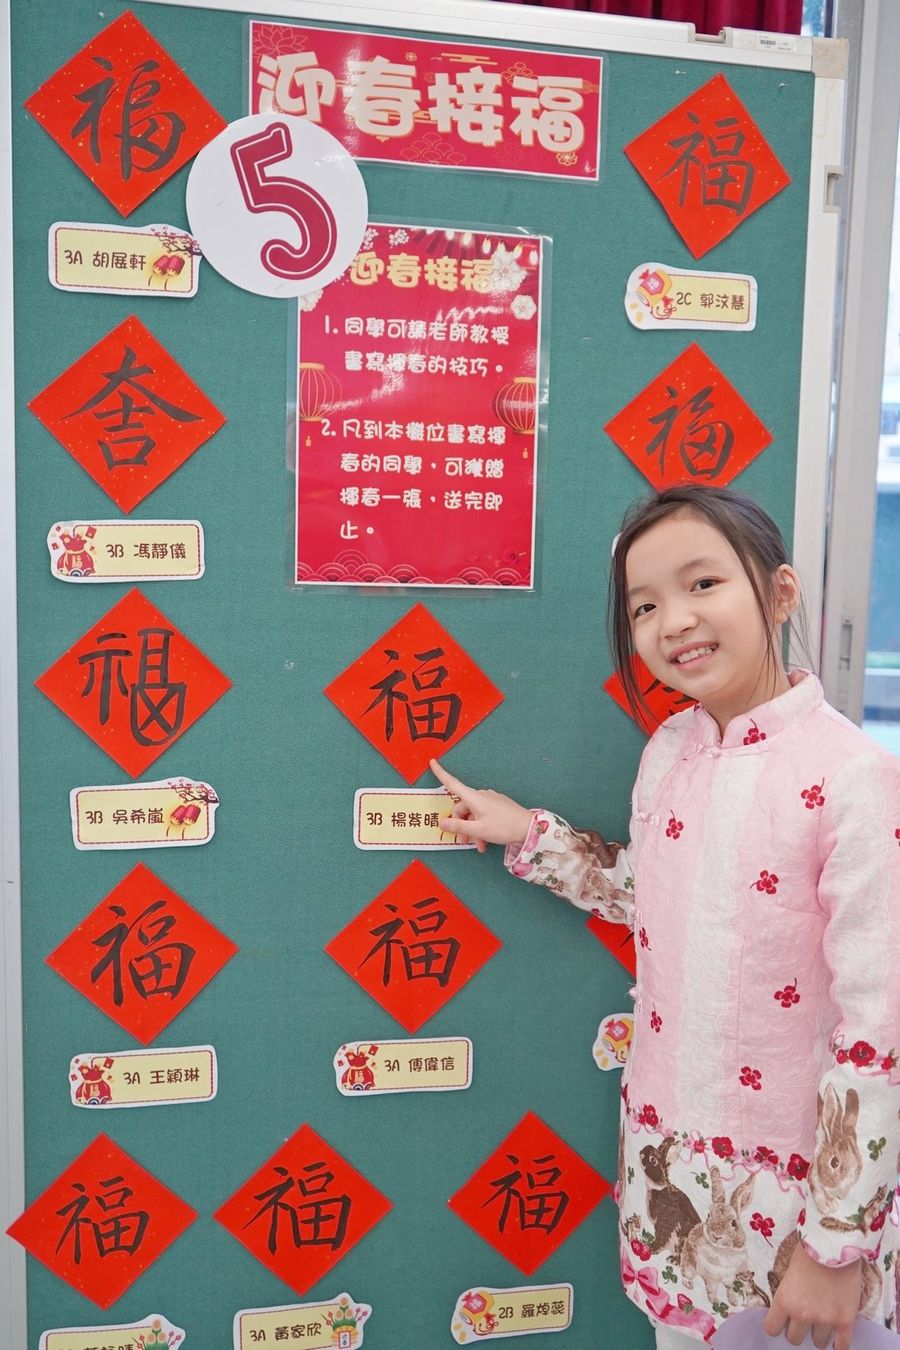 迎春接福
5
迎春接福
1. 同學可請老師教授
書寫揮春的技巧。
2. 凡到本攤位書寫揮
春的同學，可獲贈
揮春一張，送完即
止。
福
3A 胡展軒
福
2C 郭汶慧
吉
3B 馮靜儀
福
福
3B 吳希嵐
福
3B 楊紫晴
福
3A 王穎琳
福
3A 傅偉信
福
福
3A 黃家欣
福
2B 羅焯蕊